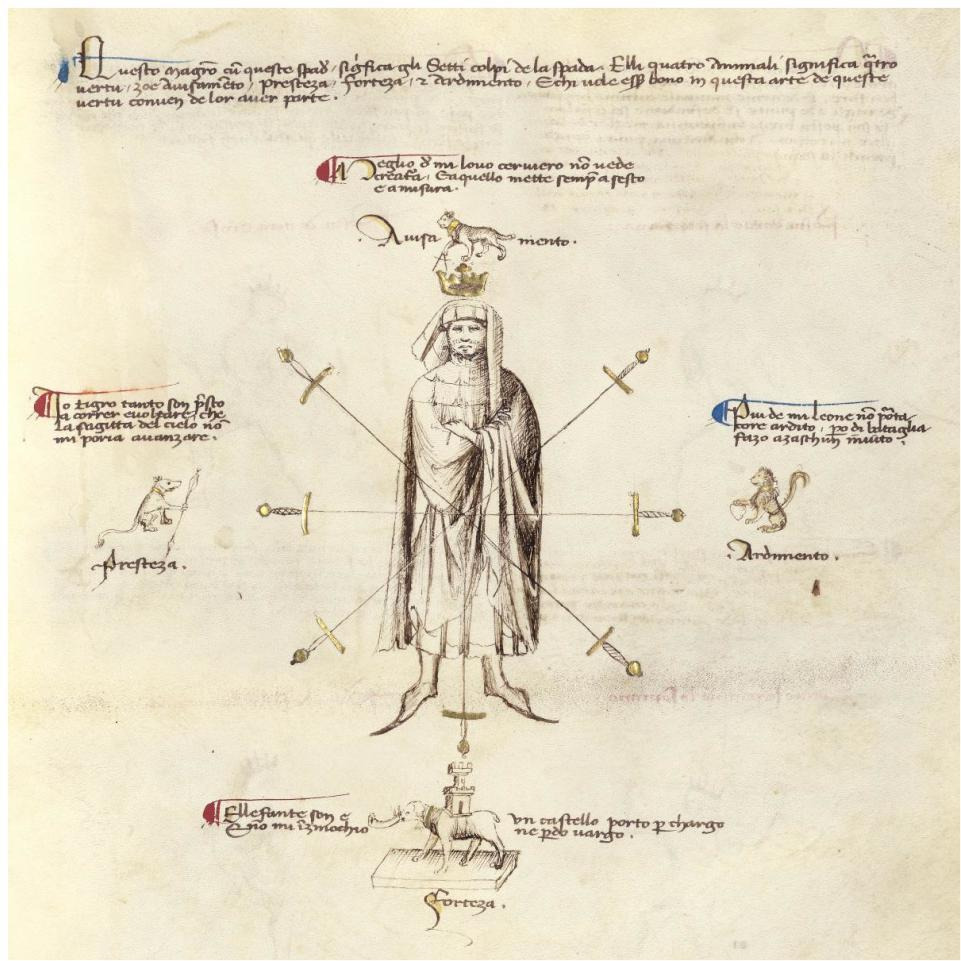 Questo magro cū queste spad', significa gli Setti colpi de la spada. Elli quatro Animali significa q̄tro
vertu, zoe Avisamēto, Presteza, Forteza, ⁊ Ardimento, E chi vole ess̄ bono in questa arte de queste
vertu conven de lor aver parte.
Meglio d̄ mi lovo cerviero nō vede
creat̄a, E aquello mette semp̄ a sesto
e a misura.
Avisa mento.
Io tigro tanto son p̄sto
a correr e voltare, che
La sagitta del cielo nō
mi poria avanzare.
Piu de mi leone nō porta
core ardito, po di bataglia
fazo azaschun īnvito.
Presteza.
Ardimento.
Ellefante son e un castello porto p̄ chargo
E nō mi īzinochio ne p̄do vargo.
Forteza.